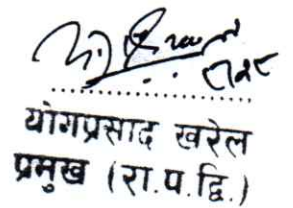 योगप्रसाद खरेल
प्रमुख (रा.प.द्वि.)